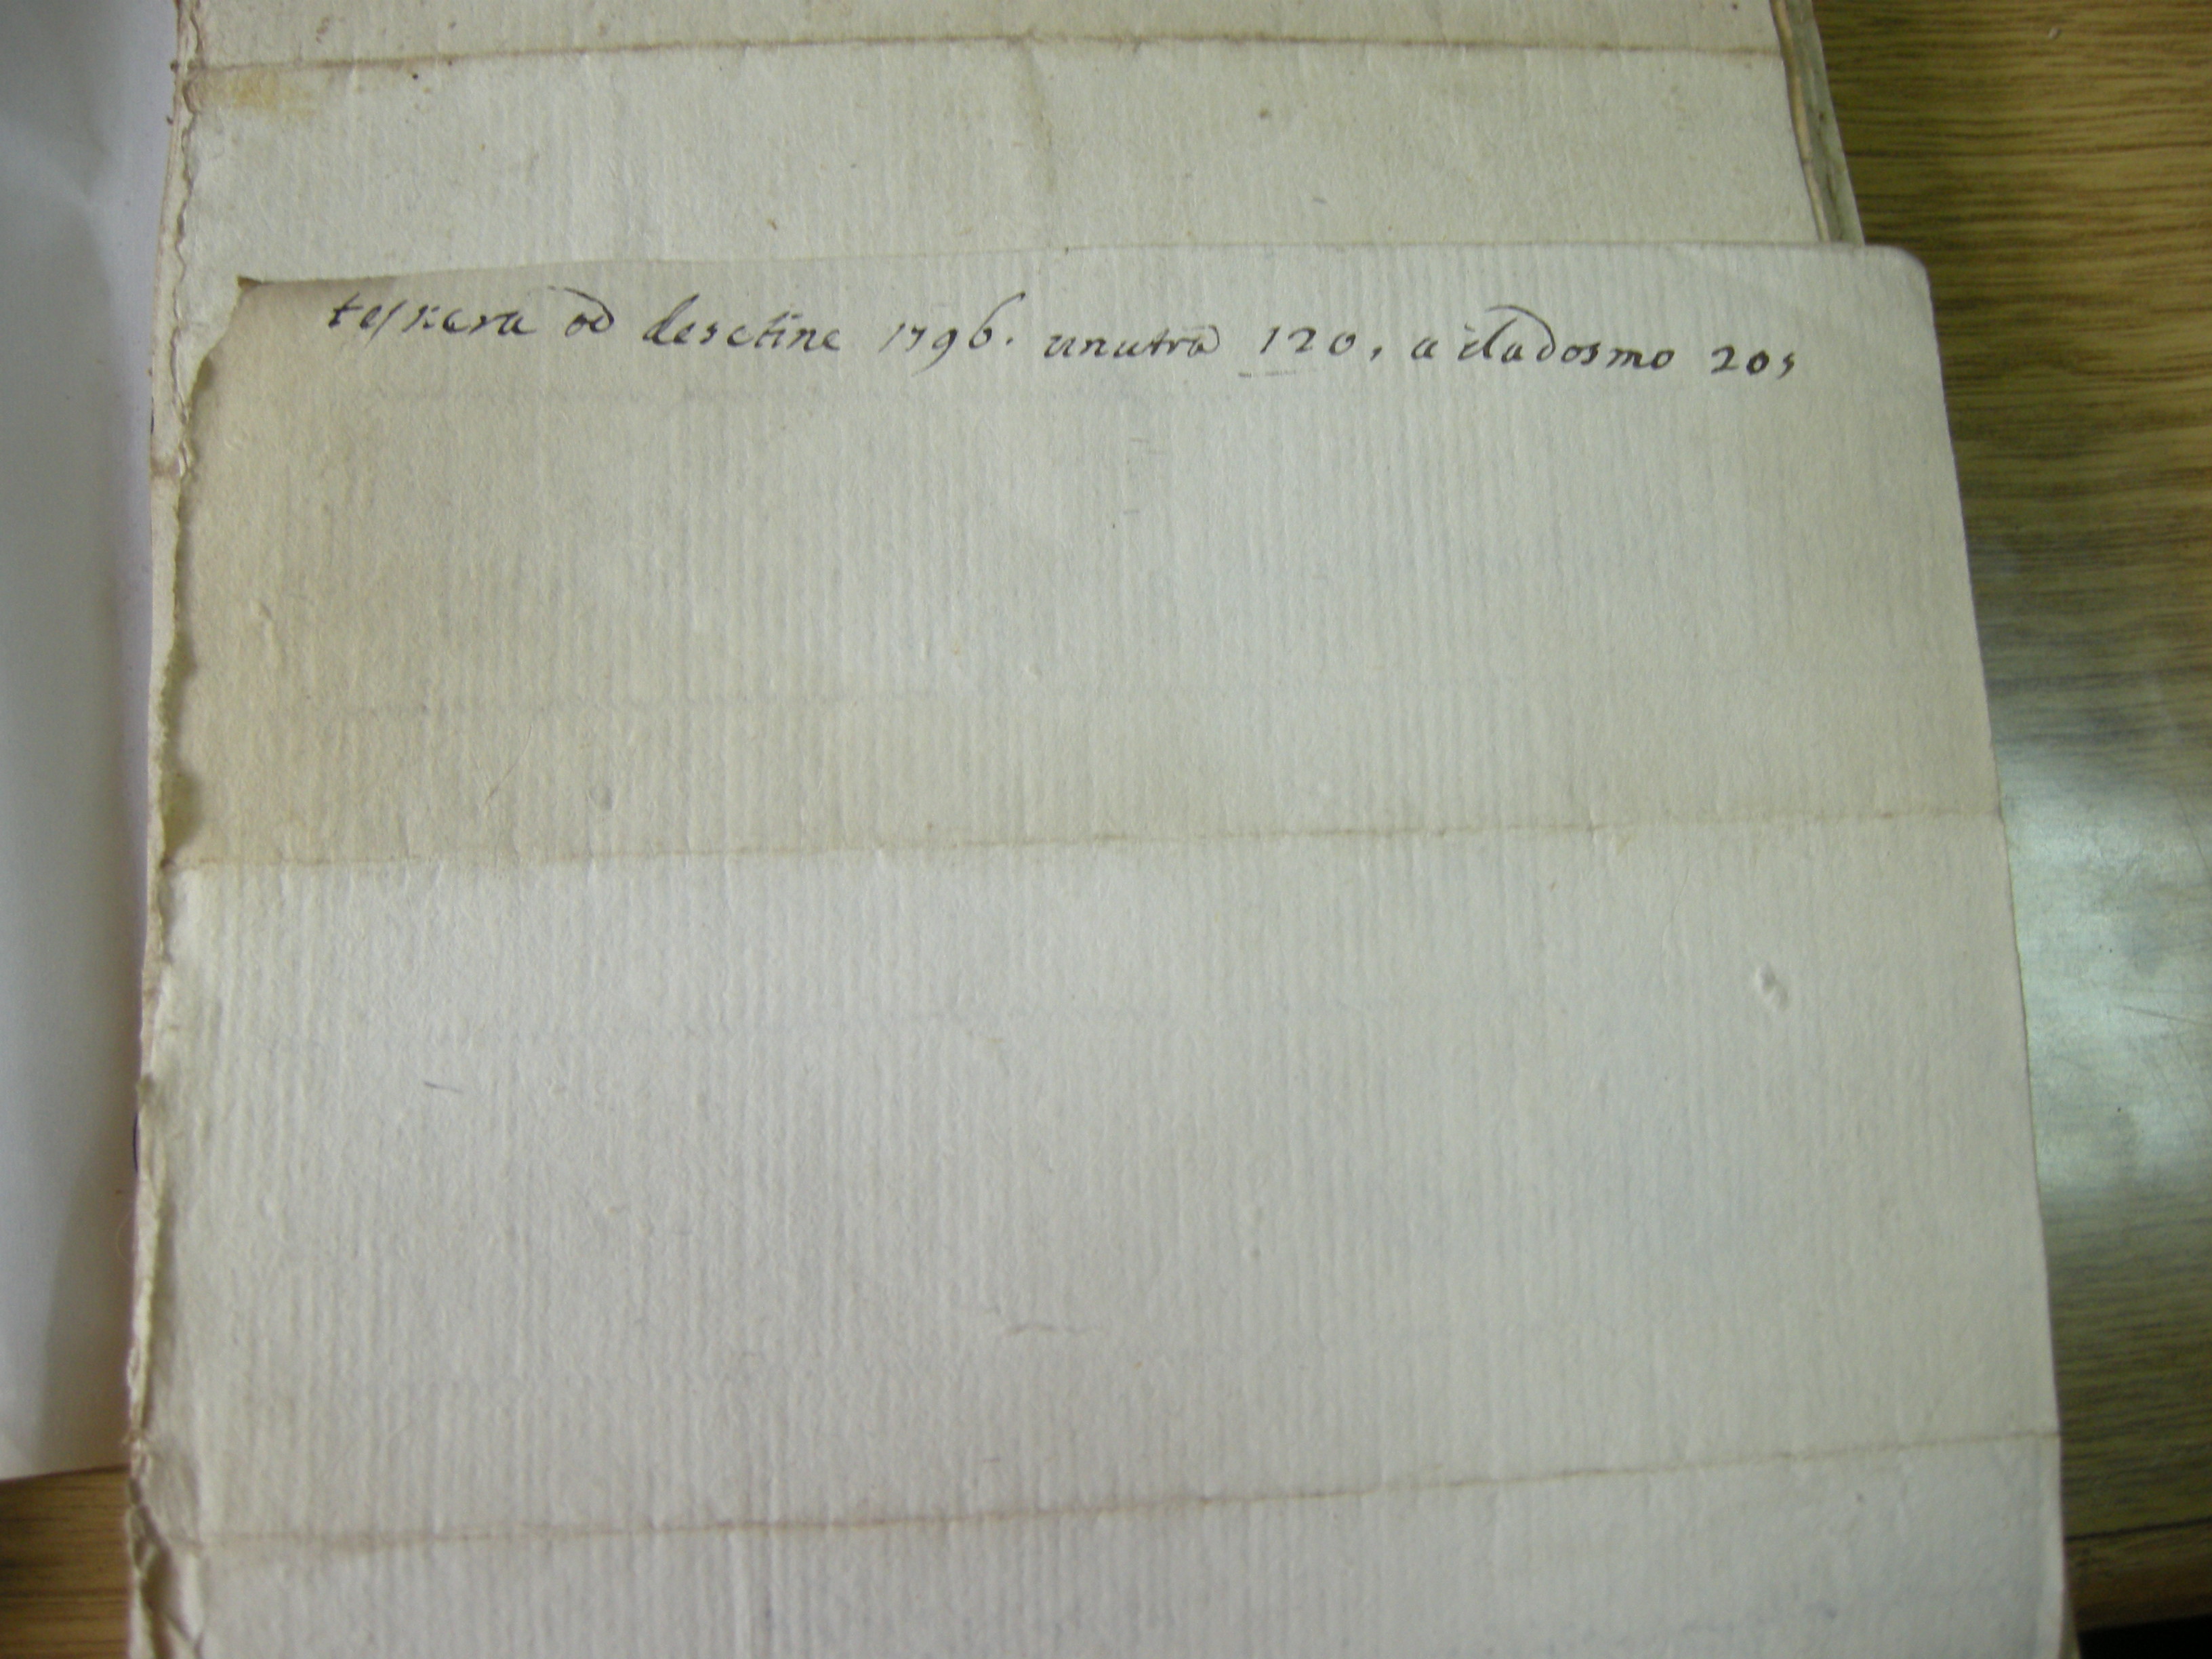 teskera od desetine 1796. unutra 120, a i dadosmo 205